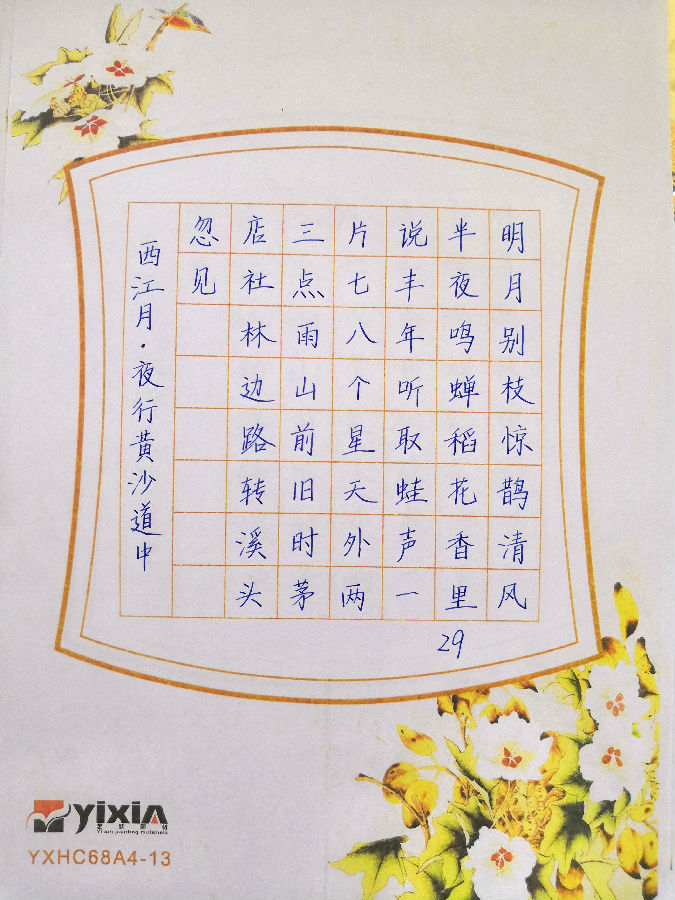 明月别枝惊鹊清风
半夜鸣蝉稻花香里
说丰年听取蛙声一
片七八个星天外两
三点雨山前旧时茅
店社林边路转溪头
忽见
西江月·夜行黄沙道中
29
yixin
YXHC68A4-13